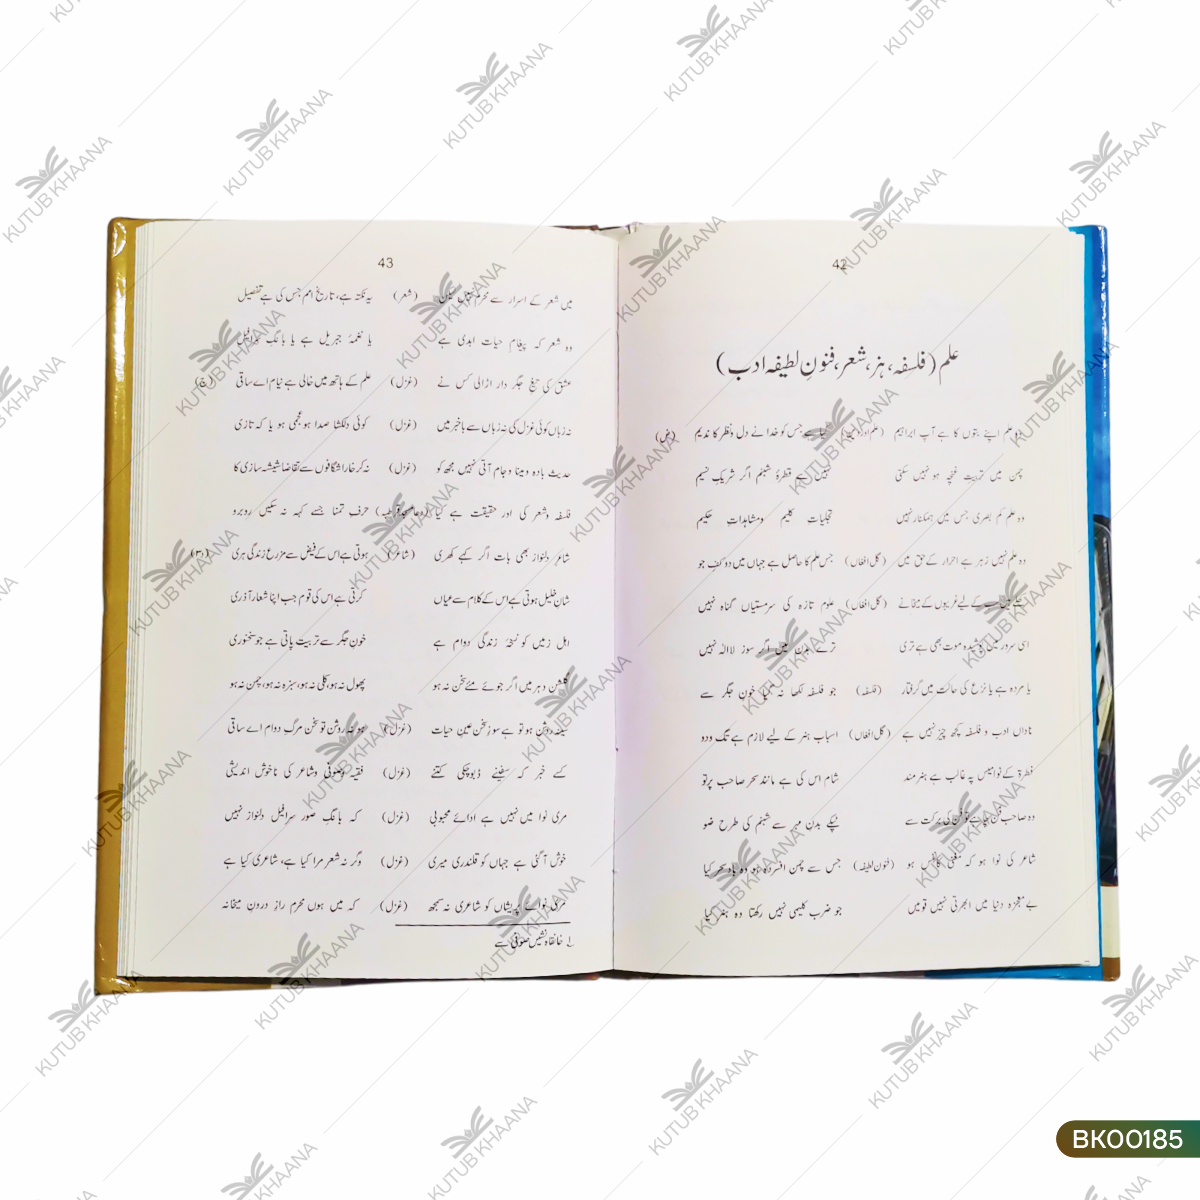 42
علم (فلسفہ، ہنر، شعر، فنونِ لطیفہ ادب)
وہ علم اپنے بتوں کا ہے آپ ابراہیم (علم اور دین) کیا ہے جس کو خدا نے دل و نظر کا ندیم (ض)
چمن میں تربیتِ غنچہ ہو نہیں سکتی نہیں ہے قطرۂ شبنم اگر شریکِ نسیم
وہ علم کم بصری جس میں ہمکنار نہیں تجلیاتِ کلیم و مشاہداتِ حکیم
وہ علم نہیں زہر ہے احرار کے حق میں (گل افغاں) جس علم کا حاصل ہے جہاں میں دو کفِ جو
کے لیے غریبوں کے میخانے (گل افغاں) علومِ تازہ کی سرمستیاں گناہ نہیں
اسی سرور میں پوشیدہ موت بھی ہے تری ترے بدن میں اگر سوزِ لا الٰہ نہیں
یا مردہ ہے یا نزع کی حالت میں گرفتار (فلسفہ) جو فلسفہ لکھا نہ گیا خونِ جگر سے
ناداں ادب و فلسفہ کچھ چیز نہیں ہے (گل افغاں) اسبابِ ہنر کے لیے لازم ہے تگ و دو
فطرت کے نوامیس پہ غالب ہے ہنر مند شام اس کی ہے مانندِ سحر صاحبِ پرتو
وہ صاحبِ فن چاہے تو فن کی برکت سے ٹپکے بدنِ مہر سے شبنم کی طرح ضو
شاعر کی نوا ہو کہ مغنی کا نفس ہو (فنون لطیفہ) جس سے چمن افسردہ ہو وہ بادِ سحر کیا
بے معجزہ دنیا میں ابھرتی نہیں قومیں جو ضربِ کلیمی نہیں رکھتا وہ ہنر کیا
43
میں شعر کے اسرار سے محرم نہیں لیکن (شعر) یہ نکتہ ہے، تاریخِ امم جس کی ہے تفصیل
وہ شعر کہ پیغامِ حیاتِ ابدی ہے یا نغمۂ جبریل ہے یا بانگِ سرافیل
عشق کی تیغِ جگر دار اڑا لی کس نے (غزل) علم کے ہاتھ میں خالی ہے نیام اے ساقی (ج)
نہ زباں کوئی غزل کی نہ زباں سے باخبر میں (غزل) کوئی دلکشا صدا ہو عجمی ہو یا کہ تازی
حدیثِ بادہ و مینا و جام آتی نہیں مجھ کو (غزل) نہ کر خارا شگافوں سے تقاضا شیشہ سازی کا
فلسفہ و شعر کی اور حقیقت ہے کیا حرفِ تمنا جسے کہہ نہ سکیں روبرو
شاعرِ دلنواز بھی بات اگر کہے کھری (شاعر) ہوتی ہے اس کے فیض سے مزرعِ زندگی ہری
شانِ خلیل ہوتی ہے اس کے کلام سے عیاں کرتی ہے اس کی قوم جب اپنا شعار آذری
اہلِ زمیں کو نسخۂ زندگیِ دوام ہے خونِ جگر سے تربیت پاتی ہے جو سخنوری
گلشنِ دہر میں اگر جوئے مئے سخن نہ ہو پھول نہ ہو، کلی نہ ہو، سبزہ نہ ہو، چمن نہ ہو
سینہ روشن ہو تو ہے سوزِ سخن عینِ حیات (غزل) ہو نہ روشن تو سخن مرگِ دوام اے ساقی
کسے خبر کہ سفینے ڈبو چکی کتنے (غزل) فقیہہ و صوفی و شاعر کی ناخوش اندیشی
مری نوا میں نہیں ہے ادائے محبوبی (غزل) کہ بانگِ صورِ سرافیل دلنواز نہیں
خوش آگئی ہے جہاں کو قلندری میری (غزل) وگرنہ شعر مرا کیا ہے، شاعری کیا ہے
مری نوائے پریشاں کو شاعری نہ سمجھ (غزل) کہ میں ہوں محرمِ رازِ درونِ میخانہ
لے خانقاہ نشیں صوفی سے
KUTUB KHAANA
BK00185